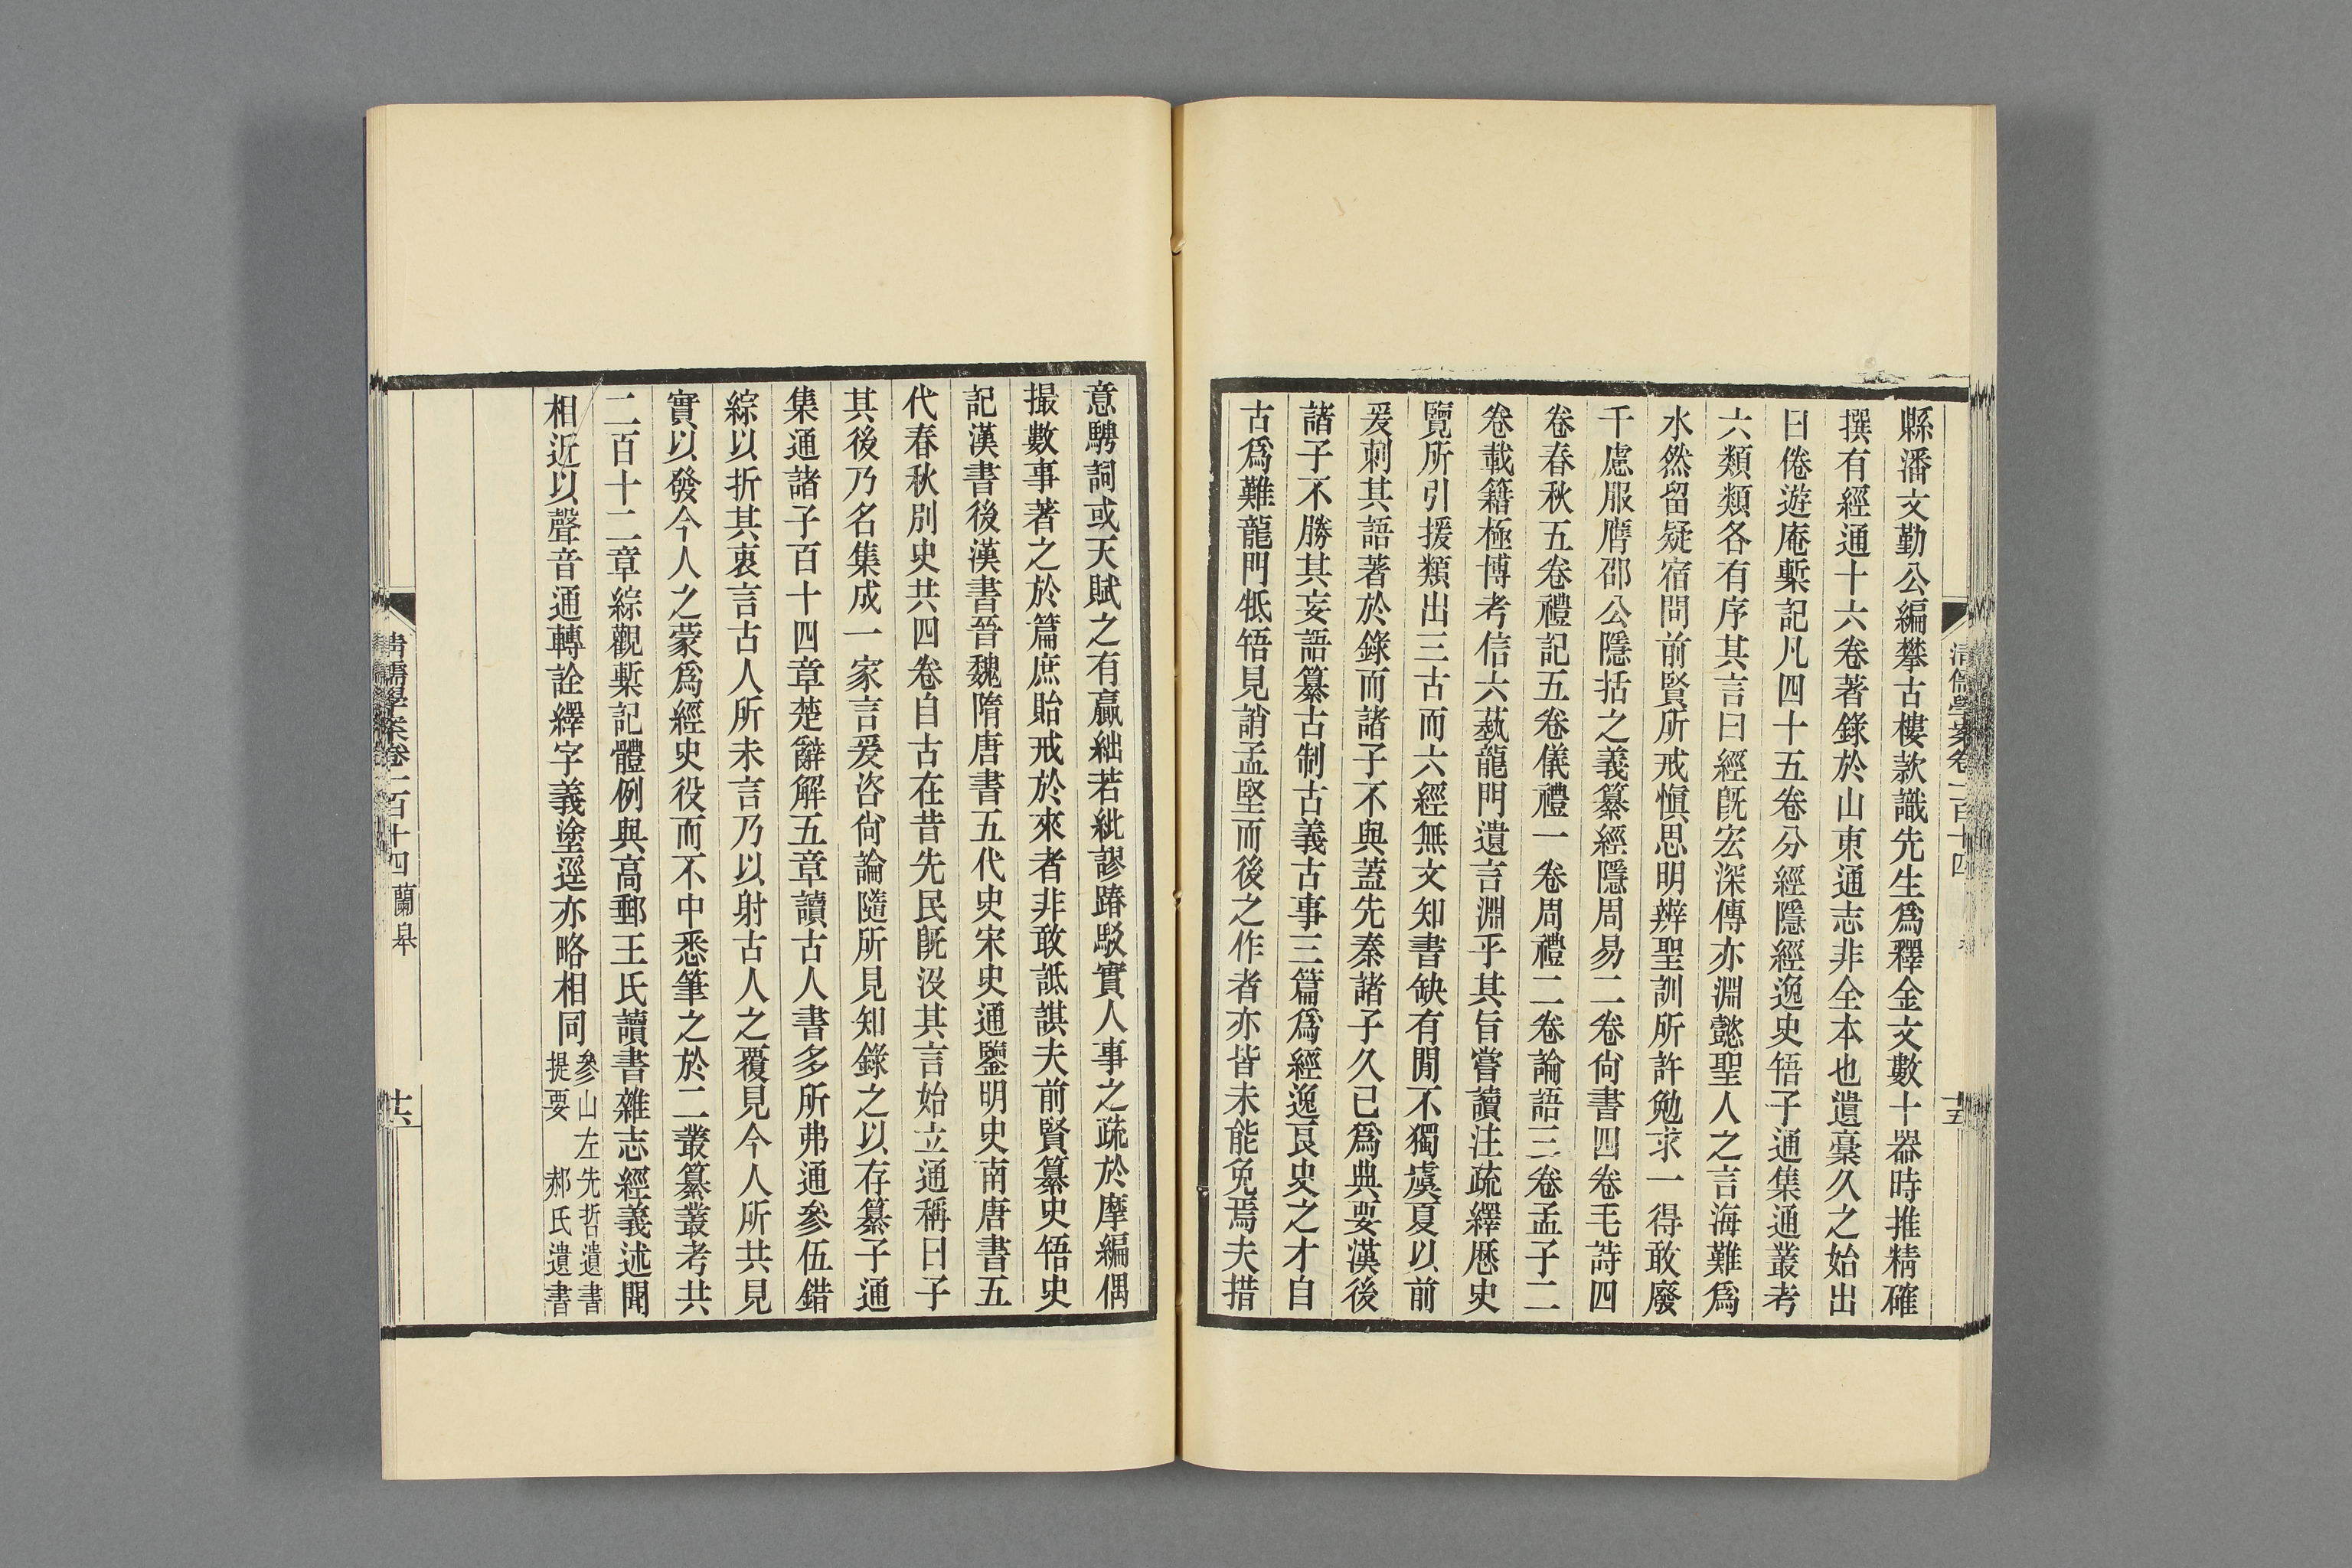 縣潘文勤公編攀古樓款識先生爲釋金文數十器時推精確
撰有經通十六卷著錄於山東通志非全本也遺稾久之始出
曰倦遊庵槧記凡四十五卷分經隱經逸史牾子通集通叢考
六類類各有序其言曰經旣宏深傳亦淵懿聖人之言海難爲
水然留疑宿問前賢所戒愼思明辨聖訓所許勉求一得敢廢
千慮服膺邵公隱括之義纂經隱周易二卷尙書四卷毛詩四
卷春秋五卷禮記五卷儀禮一卷周禮二卷論語三卷孟子二
卷載籍極博考信六藝龍門遺言淵乎其旨嘗讀注疏繹歷史
覽所引援類出三古而六經無文知書缺有閒不獨虞夏以前
爰刺其語著於錄而諸子不與蓋先秦諸子久已爲典要漢後
諸子不勝其妄語纂古制古義古事三篇爲經逸良史之才自
古爲難龍門牴牾見誚孟堅而後之作者亦皆未能免焉夫措
清儒學案卷一百十四
十五
意騁詞或天賦之有贏絀若紕謬踳駁實人事之疏於摩編偶
撮數事著之於篇庶貽戒於來者非敢詆諆夫前賢纂史牾史
記漢書後漢書晉魏隋唐書五代史宋史通鑒明史南唐書五
代春秋別史共四卷自古在昔先民旣沒其言始立通稱曰子
其後乃名集成一家言爰咨尙論隨所見知錄之以存纂子通
集通諸子百十四章楚辭解五章讀古人書多所弗通參伍錯
綜以折其衷言古人所未言乃以射古人之覆見今人所共見
實以發今人之蒙爲經史役而不中悉筆之於二叢纂叢考共
二百十二章綜觀槧記體例與高郵王氏讀書雜志經義述聞
相近以聲音通轉詮繹字義塗逕亦略相同
參山左先哲遺書
提要 郝氏遺書
清儒學案卷一百十四 蘭皋
十六